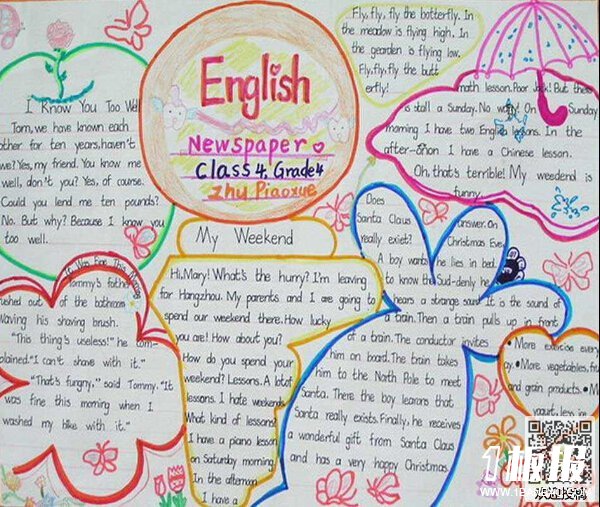 English
Newspaper
Class 4, Grade 4
Zhu Piaoxue
Fly, fly, fly the botterfly. In
the meadow is flying high. In
the gearden is flying low.
Fly, fly, fly the butt
erfly!
I Know You Too Well
Tom, we have known each
other for ten years, haven't
we? Yes, my friend. You know me
well, don't you? Yes, of course.
Could you lend me ten pounds?
No. But why? Because I know you
too well.
It Was Fine This Morning
Tommy's father
rushed out of the bathroom
waving his shaving brush.
"This thing's useless!" he
plained. "I can't shave with it."
"That's fungny," said Tommy. "It
was fine this morning when I
washed my bike with it."
My Weekend
Hi, Mary! What's the hurry? I'm leaving
for Hangzhou. My parents and I am going to
spend our weekend there. How lucky
you are! How about you?
How do you spend your
weekend? Lessons. A lot of
lessons. I hate weekends
What kind of lessons?
I have a piano lesson
on Saturday morning
In the afternoon
I have a
math lesson. Poor Jack! But there
is stall a Sunday. No way! On Sunday
morning I have two English lessons. In the
after-noon I have a Chinese lesson.
Oh, that's terrible! My weedend is
funny.
Does
Santa Claus
really exiet?
A boy wants
to know the
answer. On
Christmas Eve,
he lies in bed.
Sud-denly he
hears a strange sound. It is the sound of
a train. Then a train pulls up in front
of a train. The conductor invites
him on board. The train takes
him to the North Pole to meet
Santa. There the boy learens that
Santa really exists. Finally, he receives
a wonderful gift from Santa Claus
and has a very happy Christmas.
More exercise every
More vegetables,
and grain products.
yogurt, less
板报
欢迎投稿